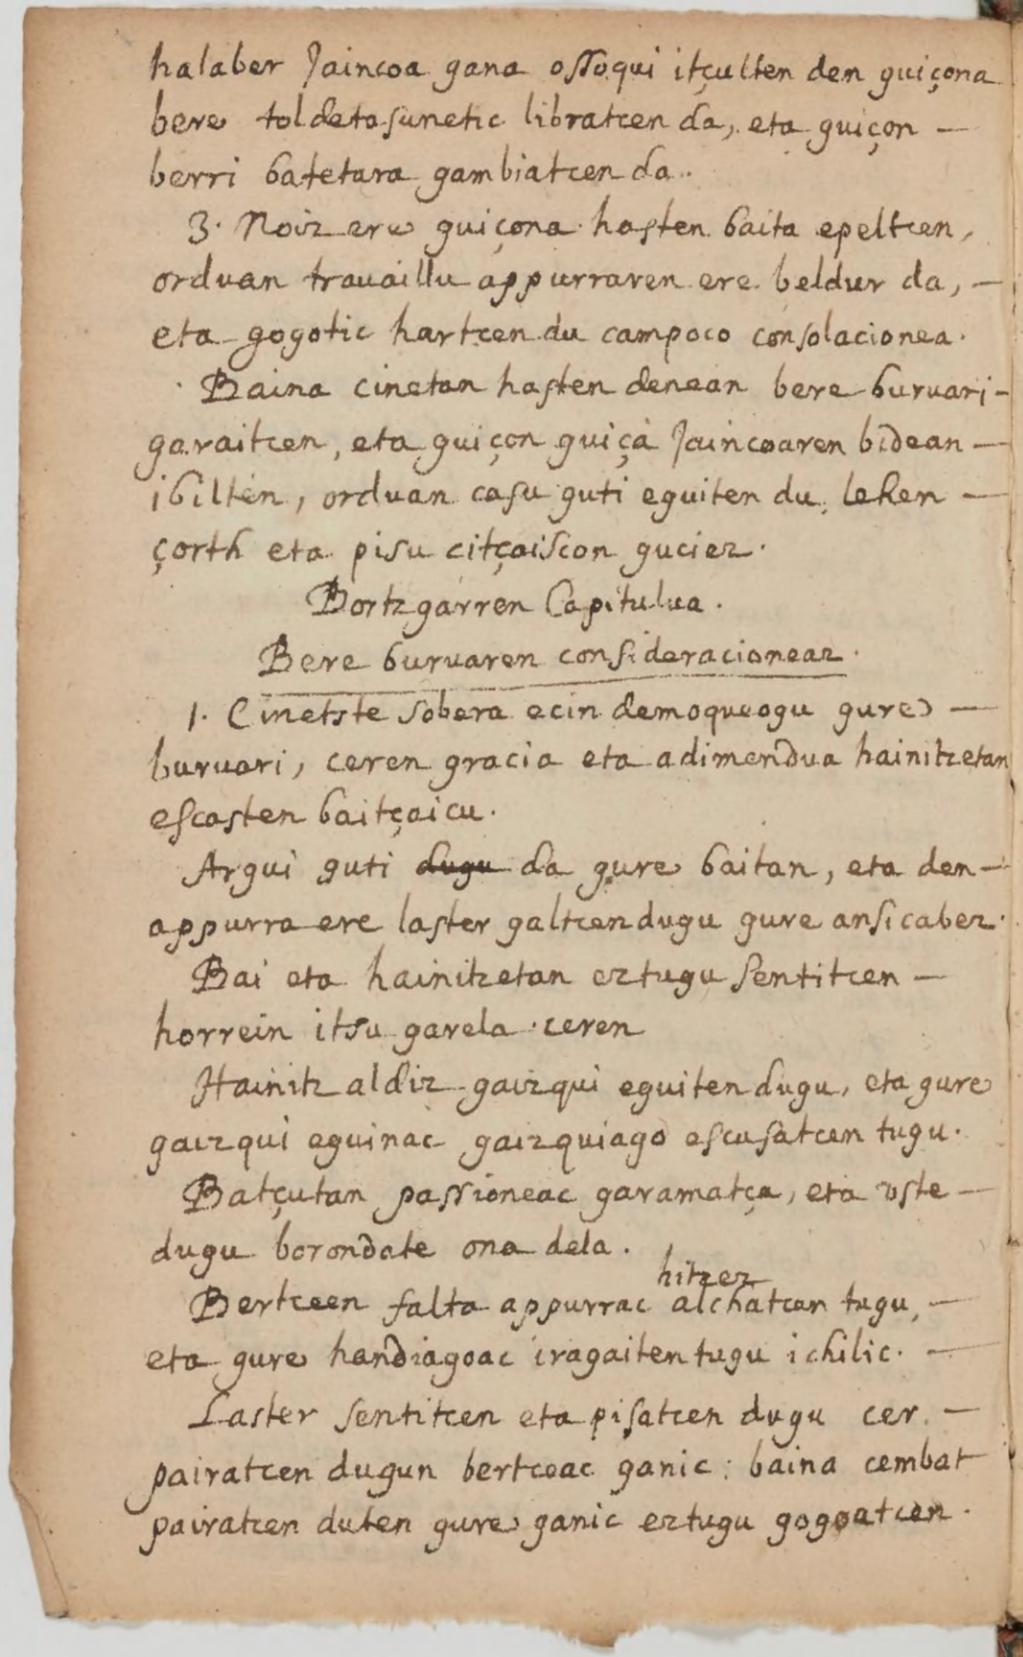 halaber Jaincoa gana ossoqui itçultten den guiçona
bere toldetasunetic libratcen da, eta guiçon —
berri batetara gambiatcen da.
3. Noiz ere guiçona hasten baita epeltcen,
orduan travaillu appurraren ere beldur da, —
eta gogotic hartcen du campoco consolacionea.
Baina cinetan hasten denean bere buruari-
garaitcen, eta guiçon guiçà Jaincoaren bidean —
ibiltén, orduan casu guti eguiten du, lehen —
çorth eta pisu citçaiscon guciez.
Bortzgarren Capitulua.
Bere buruaren consideracioneaz.
1. Cinetste sobera ecin demoqueogu gure —
buruari, ceren gracia eta adimendua hainitzetan
escasten baitçaicu.
Argui guti dugu da gure baitan, eta den—
appurra ere laster galtcen dugu gure ansicabez.
Bai eta hainitzetan eztugu sentitcen —
horrein itsu garela. ceren
Hainitz aldiz gaizqui eguiten dugu, eta gure
gaizqui eguinac gaizquiago escusatcen tugu.
Batçutan passioneac garamatça, eta uste —
dugu borondate ona dela.
hitzez
Bertceen falta appurrac alchatcen tugu, —
eta gure handiagoac iragaiten tugu ichilic. —
Laster sentitcen eta pisatcen dugu cer —
pairatcen dugun bertceac ganic: baina cembat
pairatcen duten gure ganic eztugu gogoatcen.